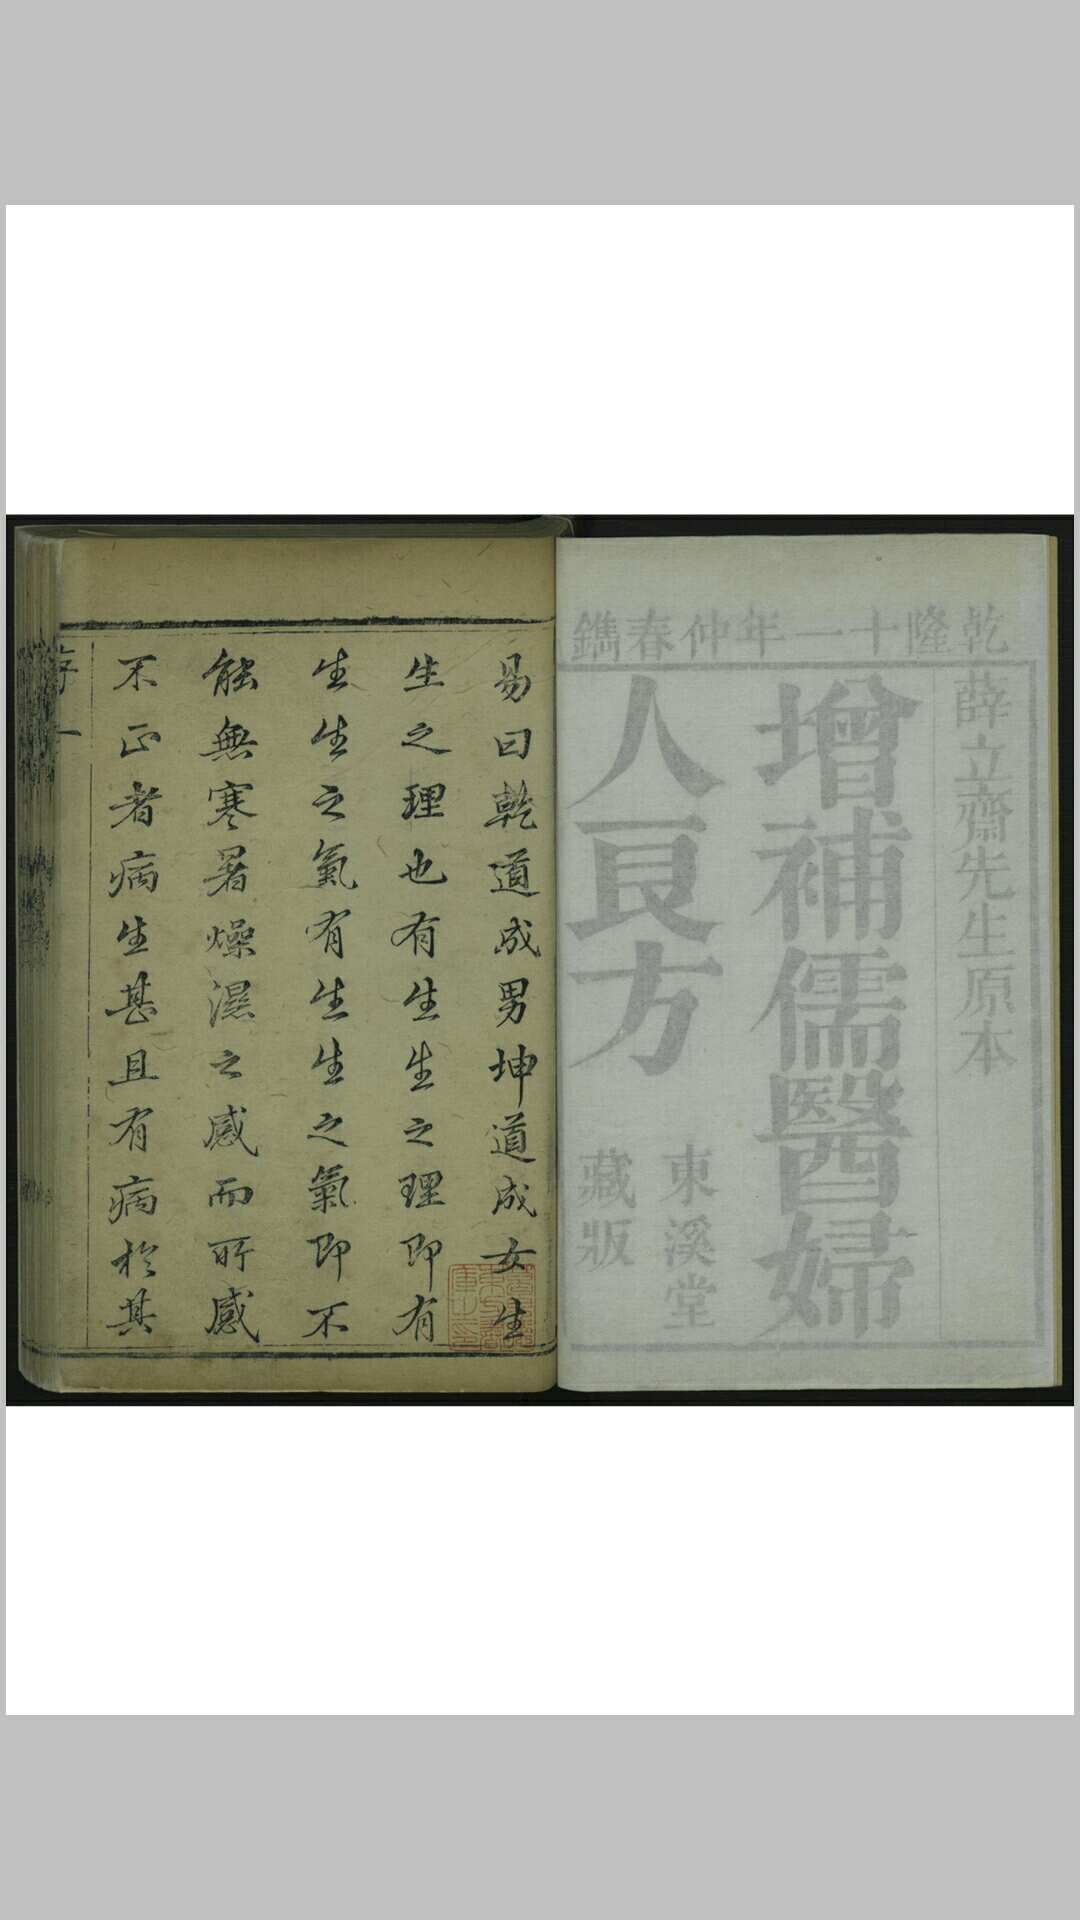 乾隆十一年仲春鐫
薛立齋先生原本
增補儒醫婦
人良方
東溪堂
藏版
易曰乾道成男坤道成女生
生之理也有生生之理即有
生生之氣有生生之氣即不
能無寒暑燥濕之感而所感
不正者病生甚且有病於其
序 一